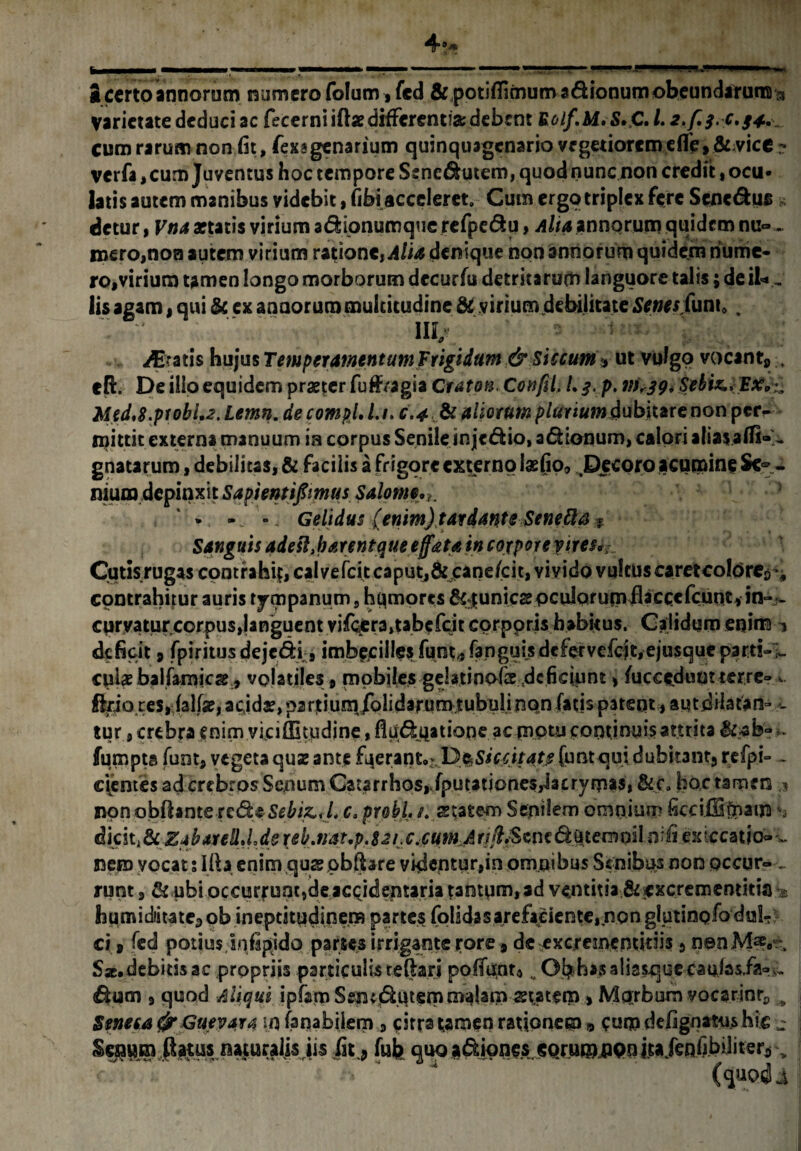 4.
à certo annorum numero ſolum, ſed & potiſſimum actionum obeundarum
varietate deduci ac ſecerni iſtæ differentiæ debent Rolf. M. S. C. l. 2. ſ. 3. c. 34.
cum rarum non ſit, ſexagenarium quinquagenario vegetiorem eſſe, & vice
verſa, cum Juventus hoc tempore Senectutem, quod nunc non credit, ocu-
latis autem manibus videbit, ſibi acceleret. Cum ergo triplex fere Senectus
detur, Vna ætatis virium actionumque reſpectu, Alia annorum quidem nu-
mero, non autem virium ratione, Alia denique non annorum quidem nume-
ro, virium tamen longo morborum decurſu detritarum languore talis; de il-
lis agam, qui & ex annorum multitudine & virium debilitate Senes ſunt.
III.
Ætatis hujus Temperamentum Frigidum & Siccum, ut vulgo vocant,
eſt. De illo equidem præter ſuffragia Craton. Conſil. l. 3. p. m. 39. Sebiz. Ex.
Med. 8. probl. 2. Lemn. de compl. l. 1. c. 4. & aliorum plurium dubitare non per-
mittit externa manuum in corpus Senile injectio, actionum, calori alias aſſi-
gnatarum, debilitas, & facilis à frigore externo læſio. Decoro acumine Se-
nium depinxit Sapientiſſimus Salome.
- - - Gelidus (enim) tardante Senecta
Sanguis adeſt, harentque effæta in corpore vires.
Cutis rugas contrahit, calveſcit caput, & caneſcit, vivido vultus caret colore,
contrahitur auris tympanum, humores & tunicæ oculorum flacceſcunt, in-
curvatur corpus, languent viſcera, tabeſcit corporis habitus. Calidum enim
deficit, ſpiritus dejecti, imbecilles ſunt, ſanguis deferveſcit, ejusque parti-
culæ balſamicæ, volatiles, mobiles gelatinoſæ deficiunt, ſuccedunt terre-
ſtriores, ſalſæ, acidæ, partium ſolidarum tubuli non ſatis patent, aut dilatan-
tur, crebra enim viciſſitudine, fluctuatione ac motu continuis attrita & ab-
ſumpta ſunt, vegeta quæ ante fuerant. De Siccitate ſunt qui dubitant, reſpi-
cientes ad crebros Senum Catarrhos, ſputationes, lacrymas, &c. hoc tamen
non obſtante recte Sebiz. l. c. probl. 1. ætatem Senilem omnium ſicciſſimam
dicit, & Zabarell. l. de reb. nat. p. 821. c. cum Ariſt. Senectutem nil niſi exiccatio-
nem vocat: Iſta enim quæ obſtare videntur, in omnibus Senibus non occur-
runt, & ubi occurrunt, de accidentaria tantum, ad ventitia & excrementitia
humiditate, ob ineptitudinem partes ſolidas areſaciente, non glutinoſo dul-
ci, ſed potius inſipido partes irrigante rore, de excrementitiis, non Mæ.
Sæ. debitis ac propriis particulis teſtari poſſunt. Ob has aliasque cauſas fa-
ctum, quod Aliqui ipſam Senectutem malam ætatem, Morbum vocarint,
Seneca & Guevara inſanabilem, citra tamen rationem, cum deſignatus hic
Senum ſtatus naturalis iis ſit, ſub quo actiones eorum non ita ſenſibiliter,
(quod